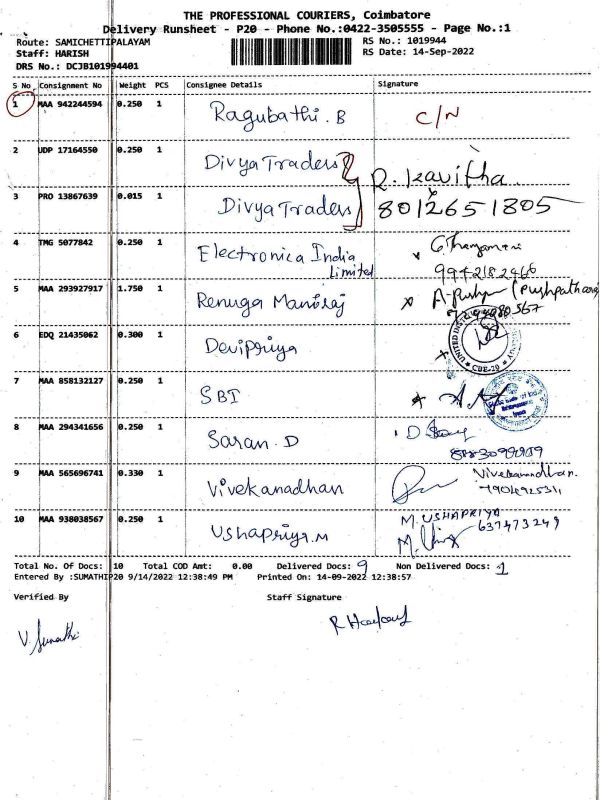 THE PROFESSIONAL COURIERS, Coimbatore
Delivery Runsheet - P20 - Phone No.:0422-3505555 - Page No.:1
Route: SAMICHETTIPALAYAM
Staff: HARISH
DRS No.: DCJB101994401
RS No.: 1019944
RS Date: 14-Sep-2022
S No Consignment No Weight PCS Consignee Details Signature
1 MAA 942244594 0.250 1 Ragubathi. B C/N
2 UDP 17164550 0.250 1 Divya Traders R. kavitha
3 PRO 13867639 0.015 1 Divya Traders 8012651805
4 TMG 5077842 0.250 1 Electronica India
Limited 9942182466
5 MAA 293927917 1.750 1 Renuga Maniraj
6 EDQ 21435062 0.300 1 Devipriya
CBE-20
7 MAA 858132127 0.250 1 SBI
8 MAA 294341656 0.250 1 Saran. D
9 MAA 565696741 0.330 1 Vivekanadhan
10 MAA 938038567 0.250 1 Ushapriya.M M. USHAPRIYA
637473249
Total No. Of Docs: 10 Total COD Amt: 0.00 Delivered Docs: 9 Non Delivered Docs: 1
Entered By :SUMATHIP20 9/14/2022 12:38:49 PM Printed On: 14-09-2022 12:38:57
Verified By Staff Signature
V. Sumathi